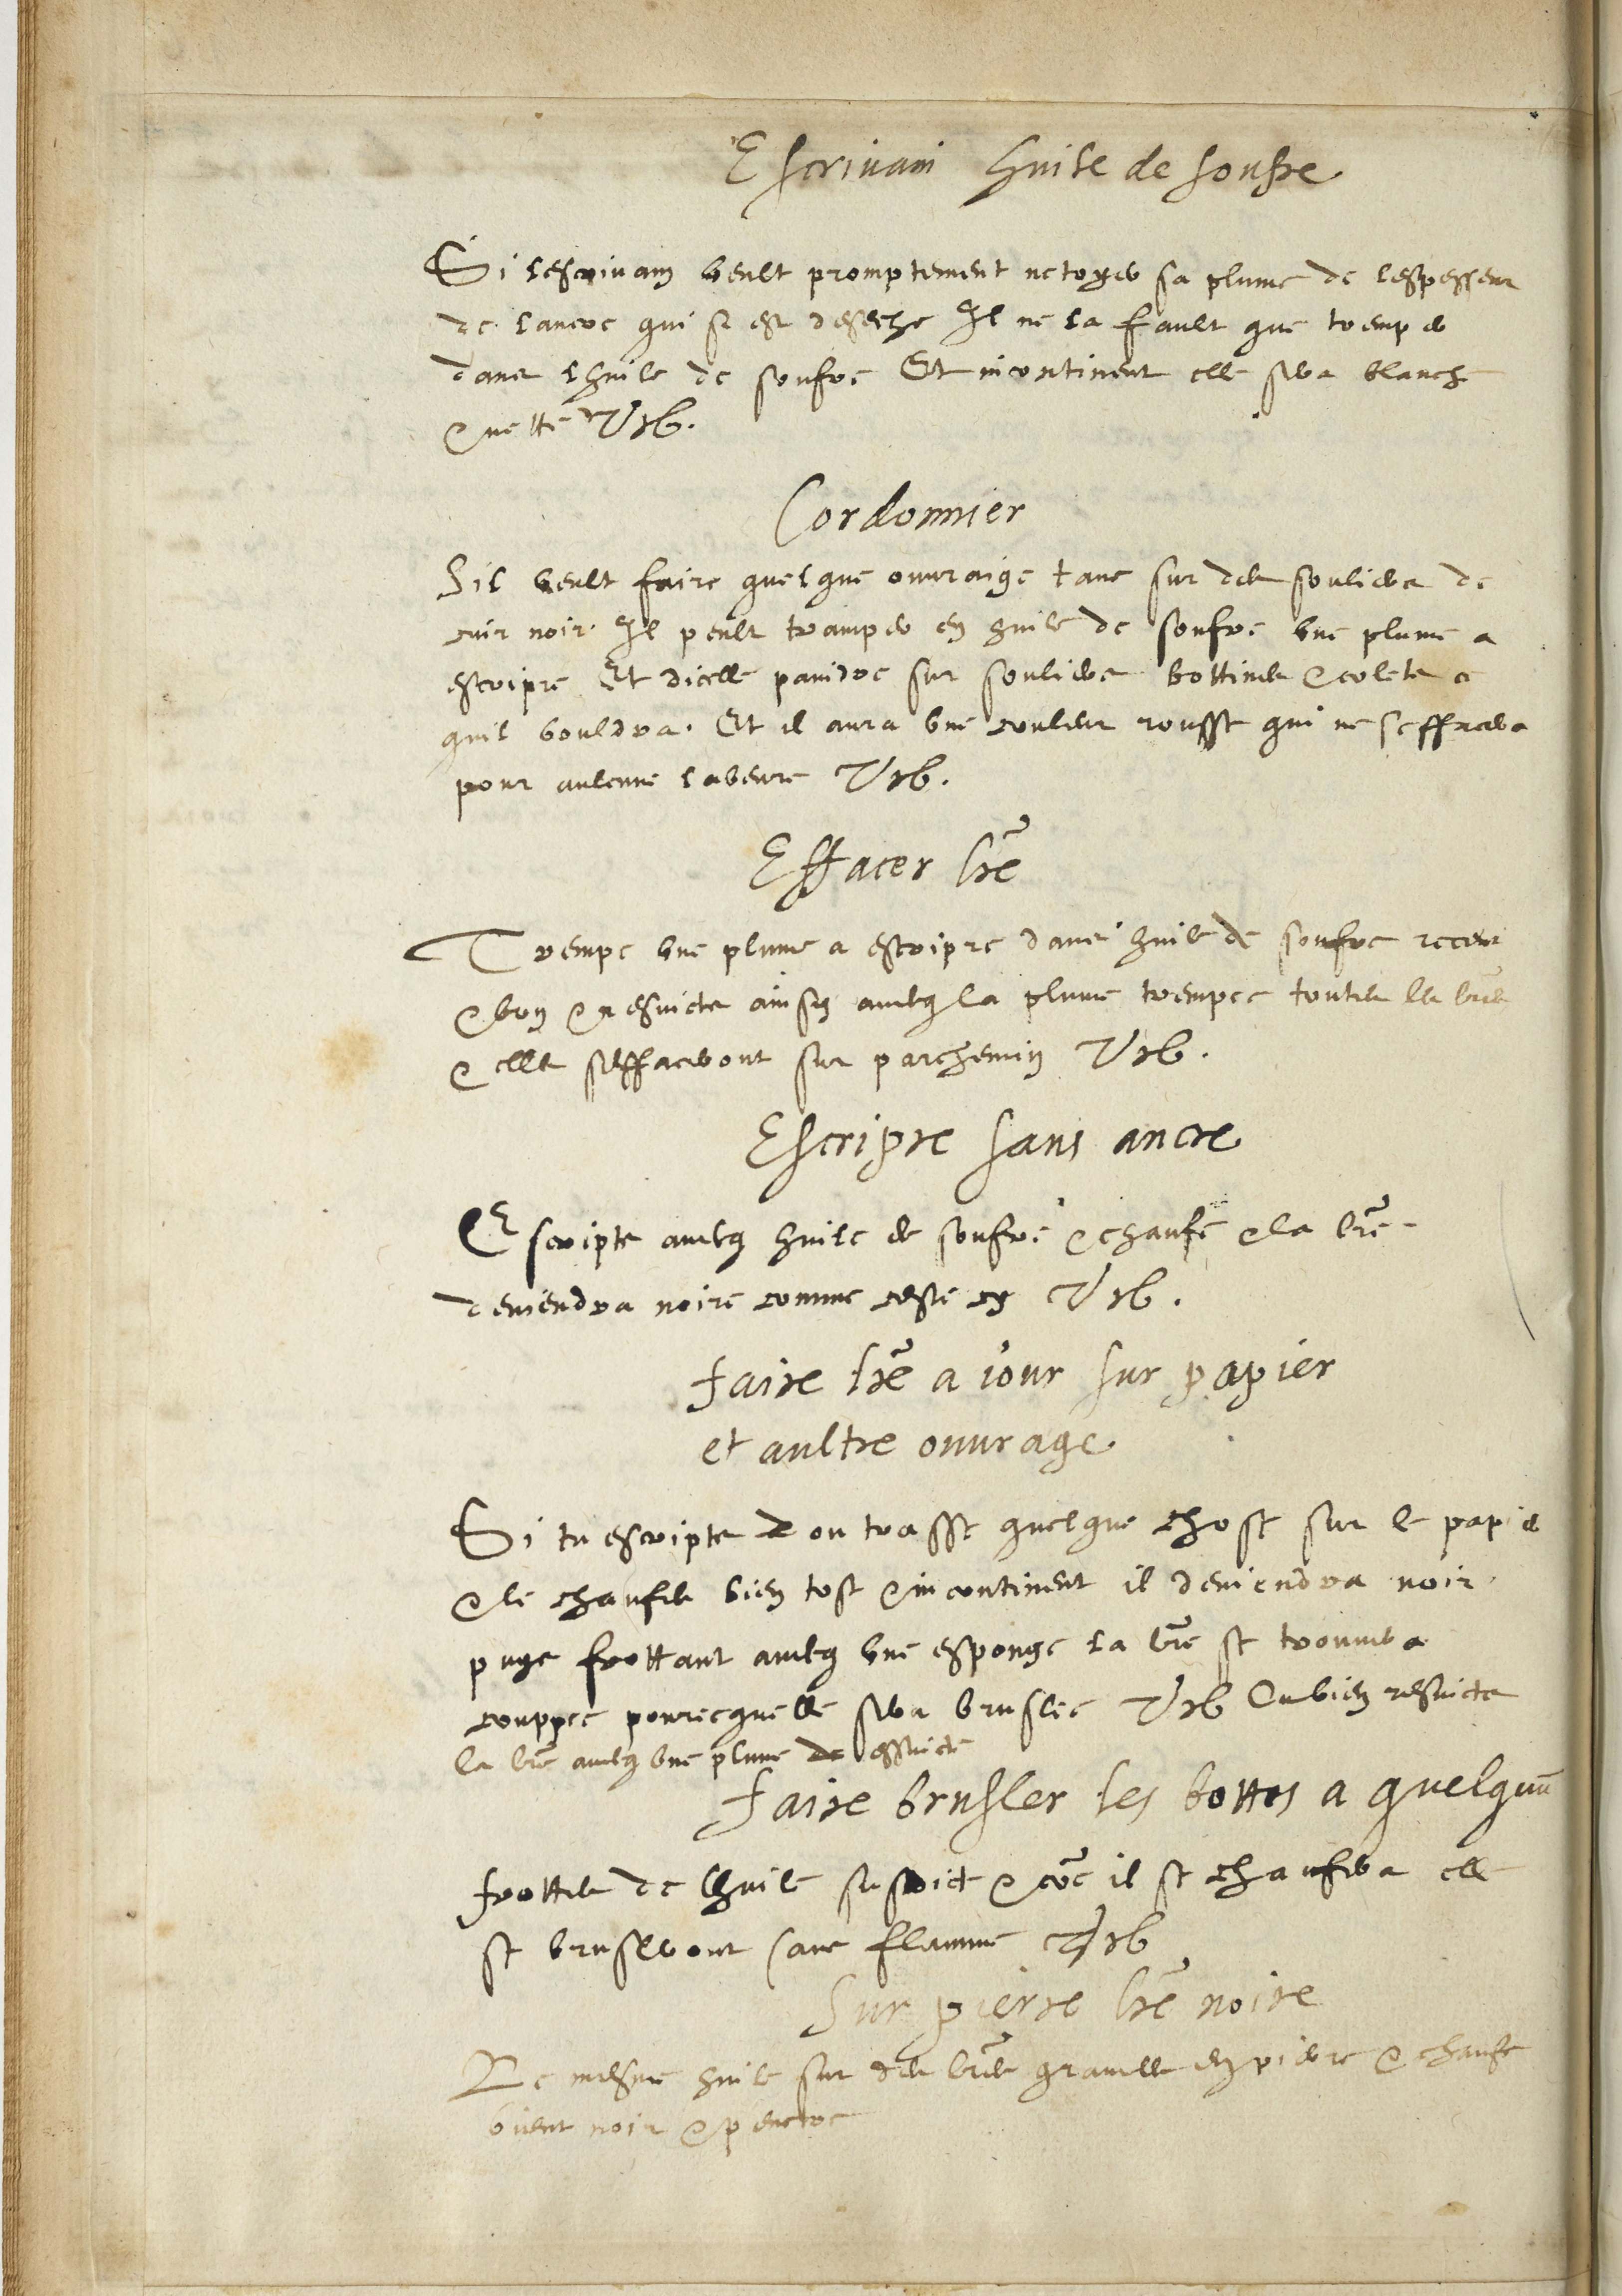 Escrivain huile de soufre
Si lescrivain veult promptement netoyer sa plume de lespesseur
de lancre qui sy est deseche Il ne la fault que tremper
dans lhuile de soufre Et incontinent elle sera blanche
& nette Vrb.
Cordonnier
Sil veult faire quelque ouvraige sur des souliers de
cuir noir Il peult tramper en huile de soufre une plume a
escripre Et dicelle paindre sur souliers bottines & colets ce
quil vouldra. Et il aura une couleur rousse qui ne seffacera
pour aulcune labeure Vrb.
Effacer lre
Trempe une plume a escripre dans huile de soufre recent
& bon & rescripts ainsy avecq la plume trempee toutes les lres
& elles seffaceront sur parchemin Vrb.
Escripre sans ancre
Escripts avecq huile de soufre & chaufe & la lre
deviendra noire comme ceste cy Vrb.
Faire lre a iour sur papier
et aultre ouvrage
Si tu escripts ou trasse quelque chose sur le papier
& le chaufes bien tost & incontinent il deviendra noir
puys frottant avecq une esponge la lre se trouvera
couppee pourcequelle sera bruslee Vrb Ou bien rescripts
la lre avecq une plume
Faire brusler les bottes a quelquun
frottes de lhuile susdict & coe il se chaufera elles
se brusleront sans flamme Vrb
Sur pierre lre noire
Le mesme huile sur des lres gravees en pierre & chaufe
vient noir & penetre